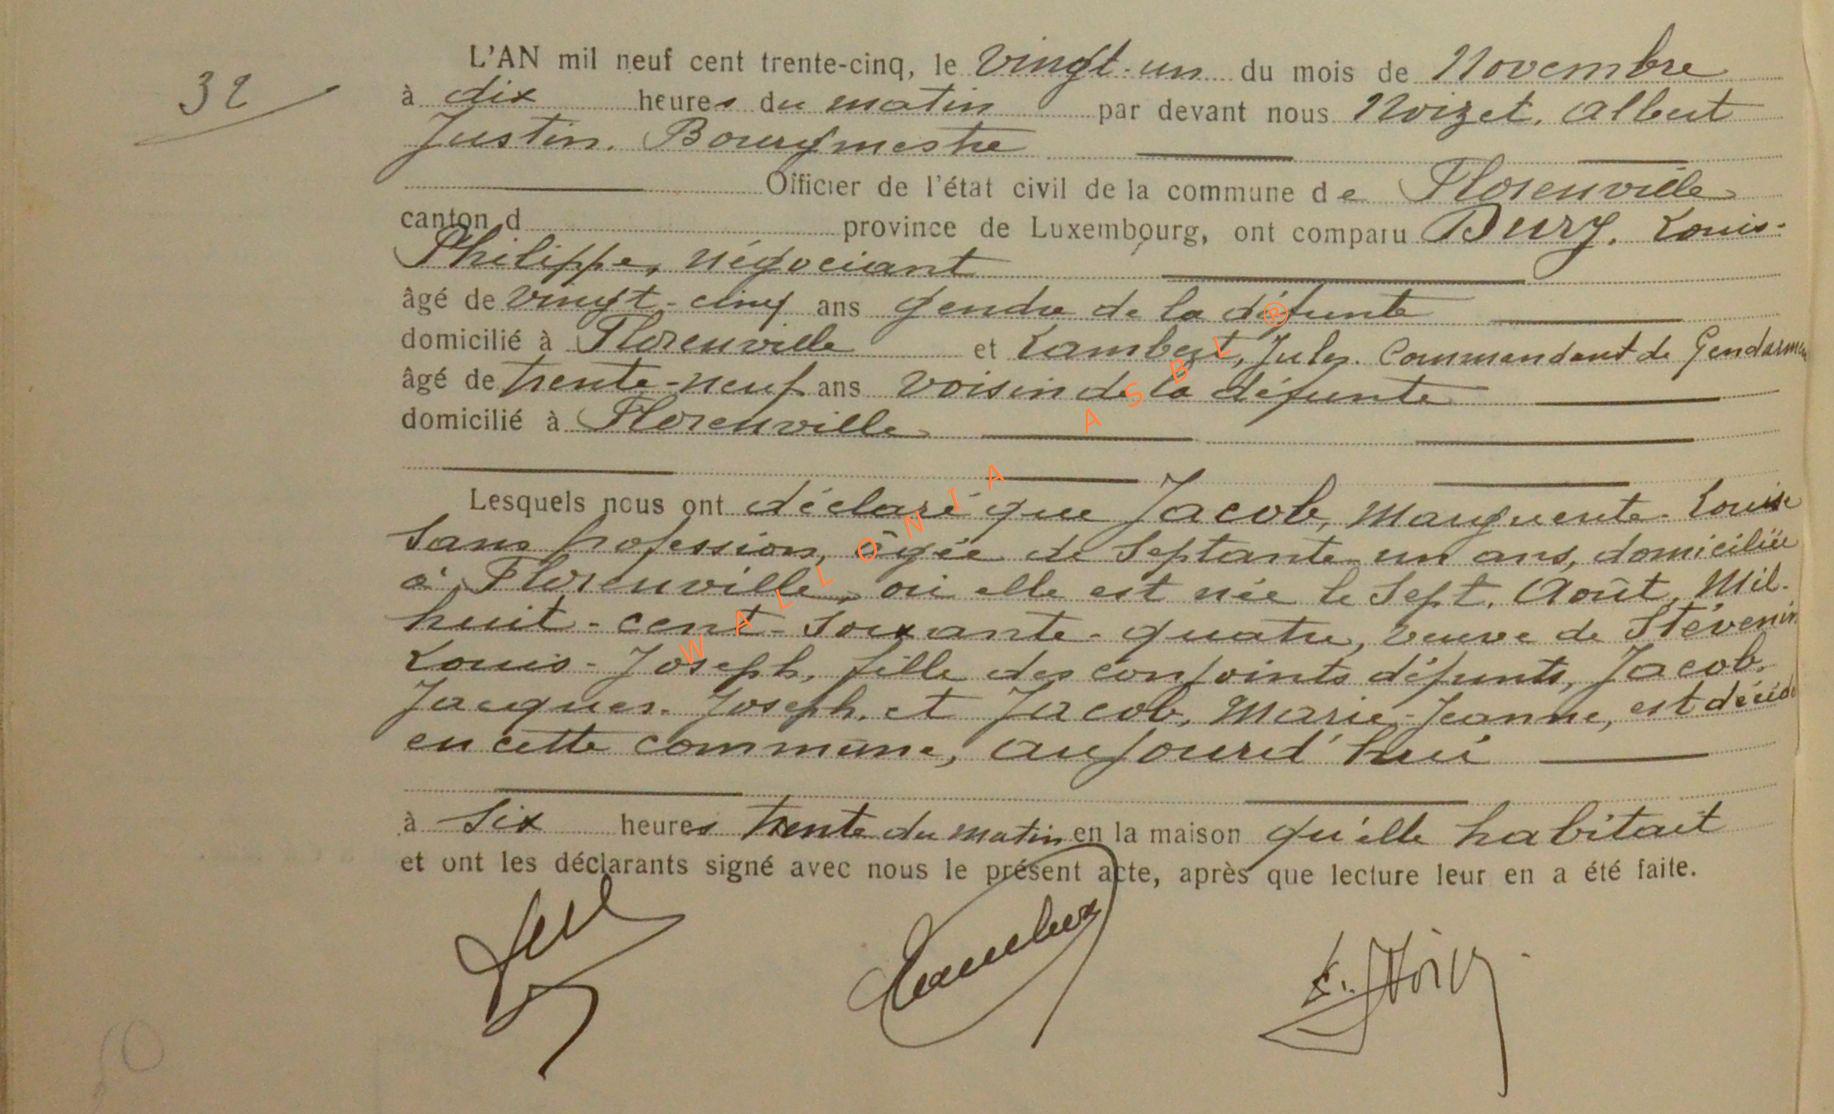 32
L'AN mil neuf cent trente-cinq, le vingt-un du mois de Novembre
à dix heures du matin par devant nous Noizet. Albert
Justin. Bourgmestre
Officier de l'état civil de la commune de Florenville
canton d province de Luxembourg, ont comparu Dury. Louis-
Philippe, négociant
âgé de vingt-cinq ans gendre de la défunte
domicilié à Florenville et Lambert, Jules. Commandant de Gendarmerie
âgé de trente-neuf ans voisin de la défunte
domicilié à Florenville
Lesquels nous ont déclaré que Jacob, Marguerite-Louise
sans profession, âgée de septante-un ans, domiciliée
à Florenville, où elle est née le sept. Août, Mil-
huit-cent-soixante-quatre, veuve de Stévenin
Louis-Joseph, fille des conjoints défunts, Jacob,
Jacques-Joseph. et Jacob, Marie-Jeanne, est décédée
en cette commune, aujourd'hui
à six heures trente du matin en la maison qu'elle habitait
et ont les déclarants signé avec nous le présent acte, après que lecture leur en a été faite.
WALLONIA ASBL ®